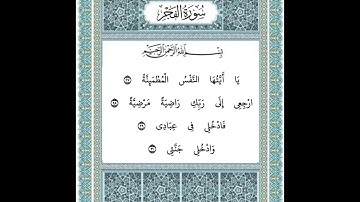 سُورَةُ الفَجْرِ
بِسْمِ اللَّهِ الرَّحْمَنِ الرَّحِيمِ
يَا أَيَّتُهَا النَّفْسُ الْمُطْمَئِنَّةُ ۝٢٧
ارْجِعِي إِلَى رَبِّكِ رَاضِيَةً مَرْضِيَّةً ۝٢٨
فَادْخُلِي فِي عِبَادِي ۝٢٩
وَادْخُلِي جَنَّتِي ۝٣٠